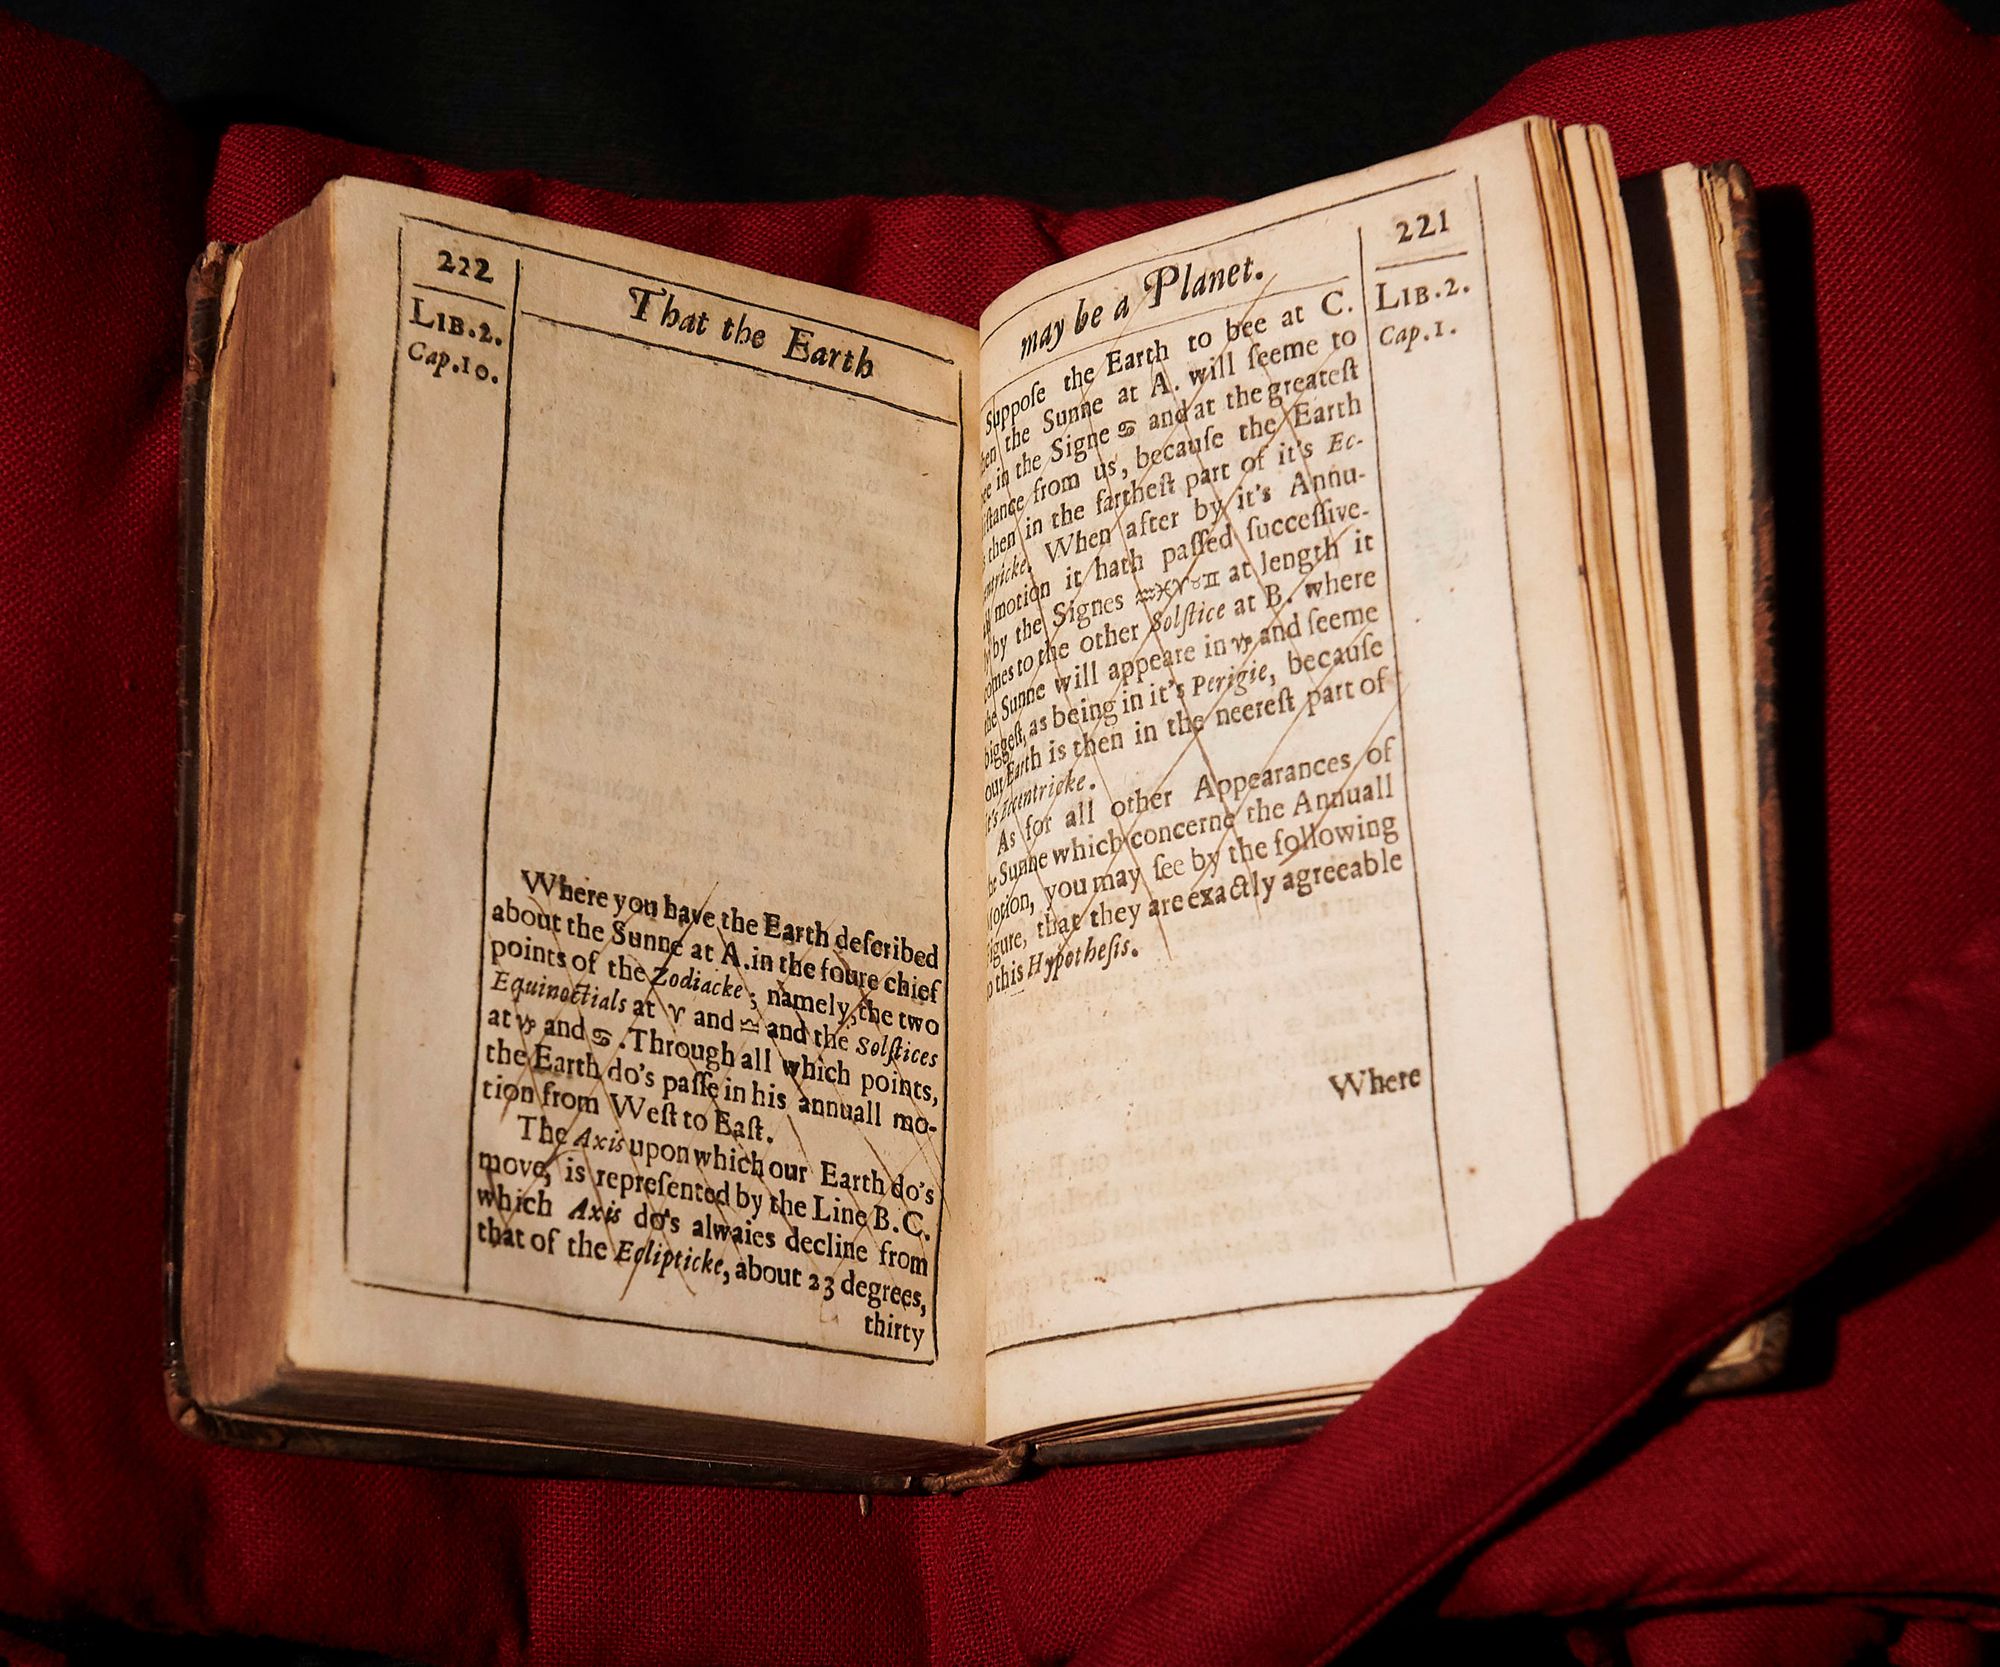 222
LIB.2.
Cap.10.
That the Earth
Where you have the Earth deſcribed
about the Sunne at A.in the foure chief
points of the Zodiacke; namely,the two
Equinoctials at ♈ and ♎ and the Solſtices
at ♑ and ♋. Through all which points,
the Earth do's paſſe in his annuall mo-
tion from Weſt to Eaſt.
The Axis upon which our Earth do's
move, is repreſented by the Line B.C.
which Axis do's alwaies decline from
that of the Eclipticke, about 23 degrees,
thirty
may be a Planet.
221
LIB.2.
Cap.1.
Suppoſe the Earth to bee at C.
the Sunne at A. will ſeeme to
in the Signe ♋ and at the greateſt
from us, becauſe the Earth
then in the fartheſt part of it's Ec-
When after by it's Annu-
motion it hath paſſed ſucceſſive-
by the Signes ♒♓♈♉♊ at length it
comes to the other Solſtice at B. where
the Sunne will appeare in ♑ and ſeeme
biggeſt, as being in it's Perigie, becauſe
our Earth is then in the neereſt part of
it's Eccentricke.
As for all other Appearances of
Sunne which concerne the Annuall
you may ſee by the following
that they are exactly agreeable
this Hypotheſis.
Where